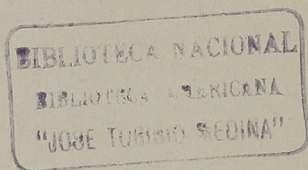 BIBLIOTECA NACIONAL
BIBLIOTECA AMERICANA
"JOSE TORIBIO MEDINA"